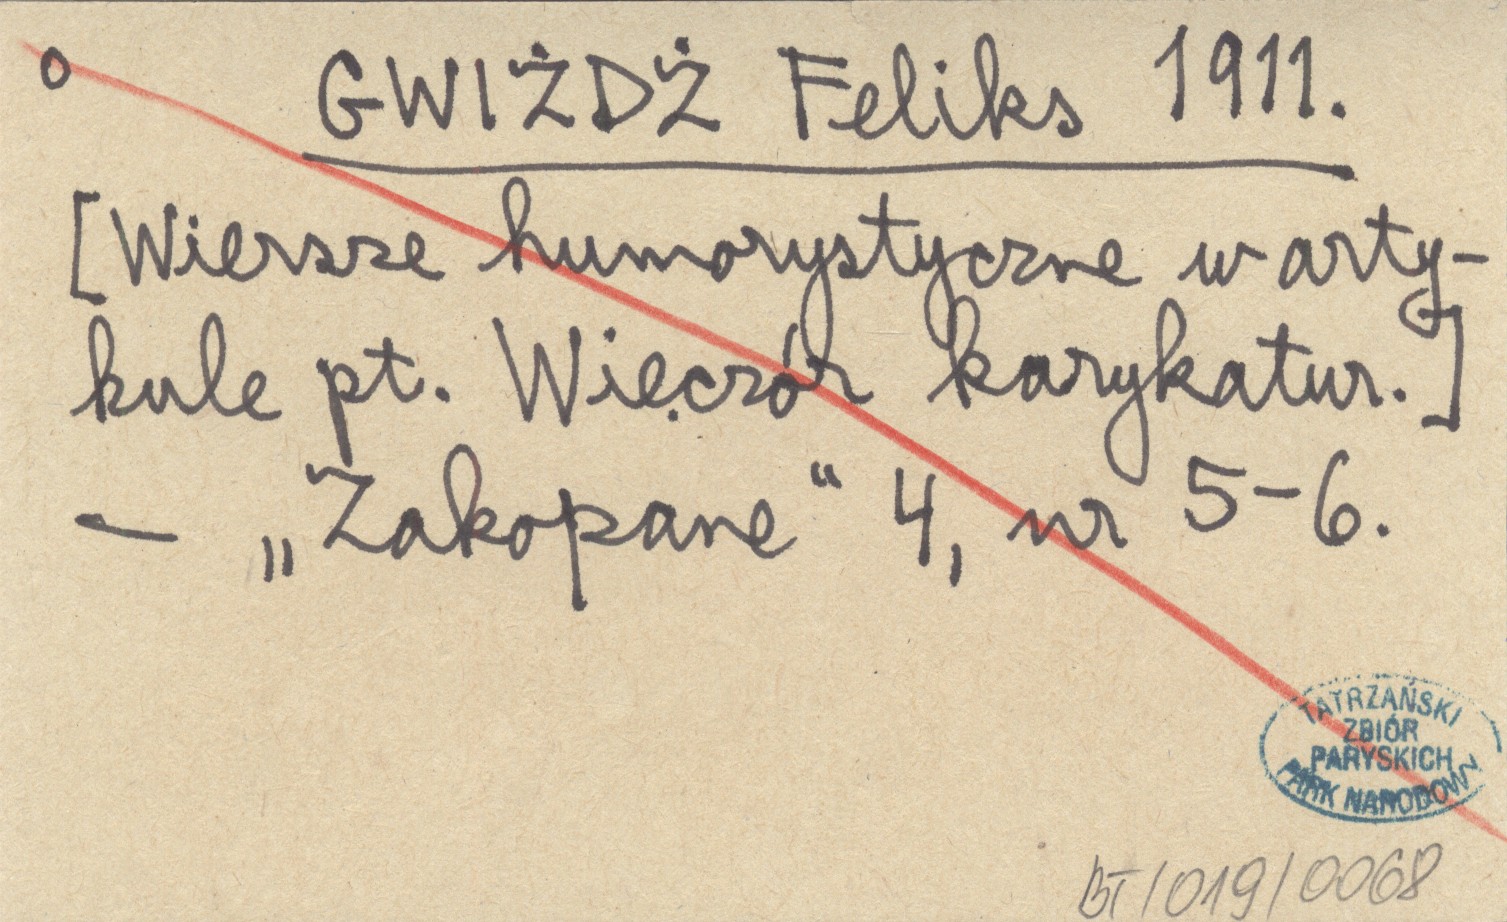 o GWIŻDŻ Feliks 1911.
[Wiersze humorystyczne w arty-
kule pt. Wieczór karykatur.]
— „Zakopane“ 4, nr 5-6.
TATRZAŃSKI
ZBIÓR
PARYSKICH
PARK NARODOWY
BT/019/0068